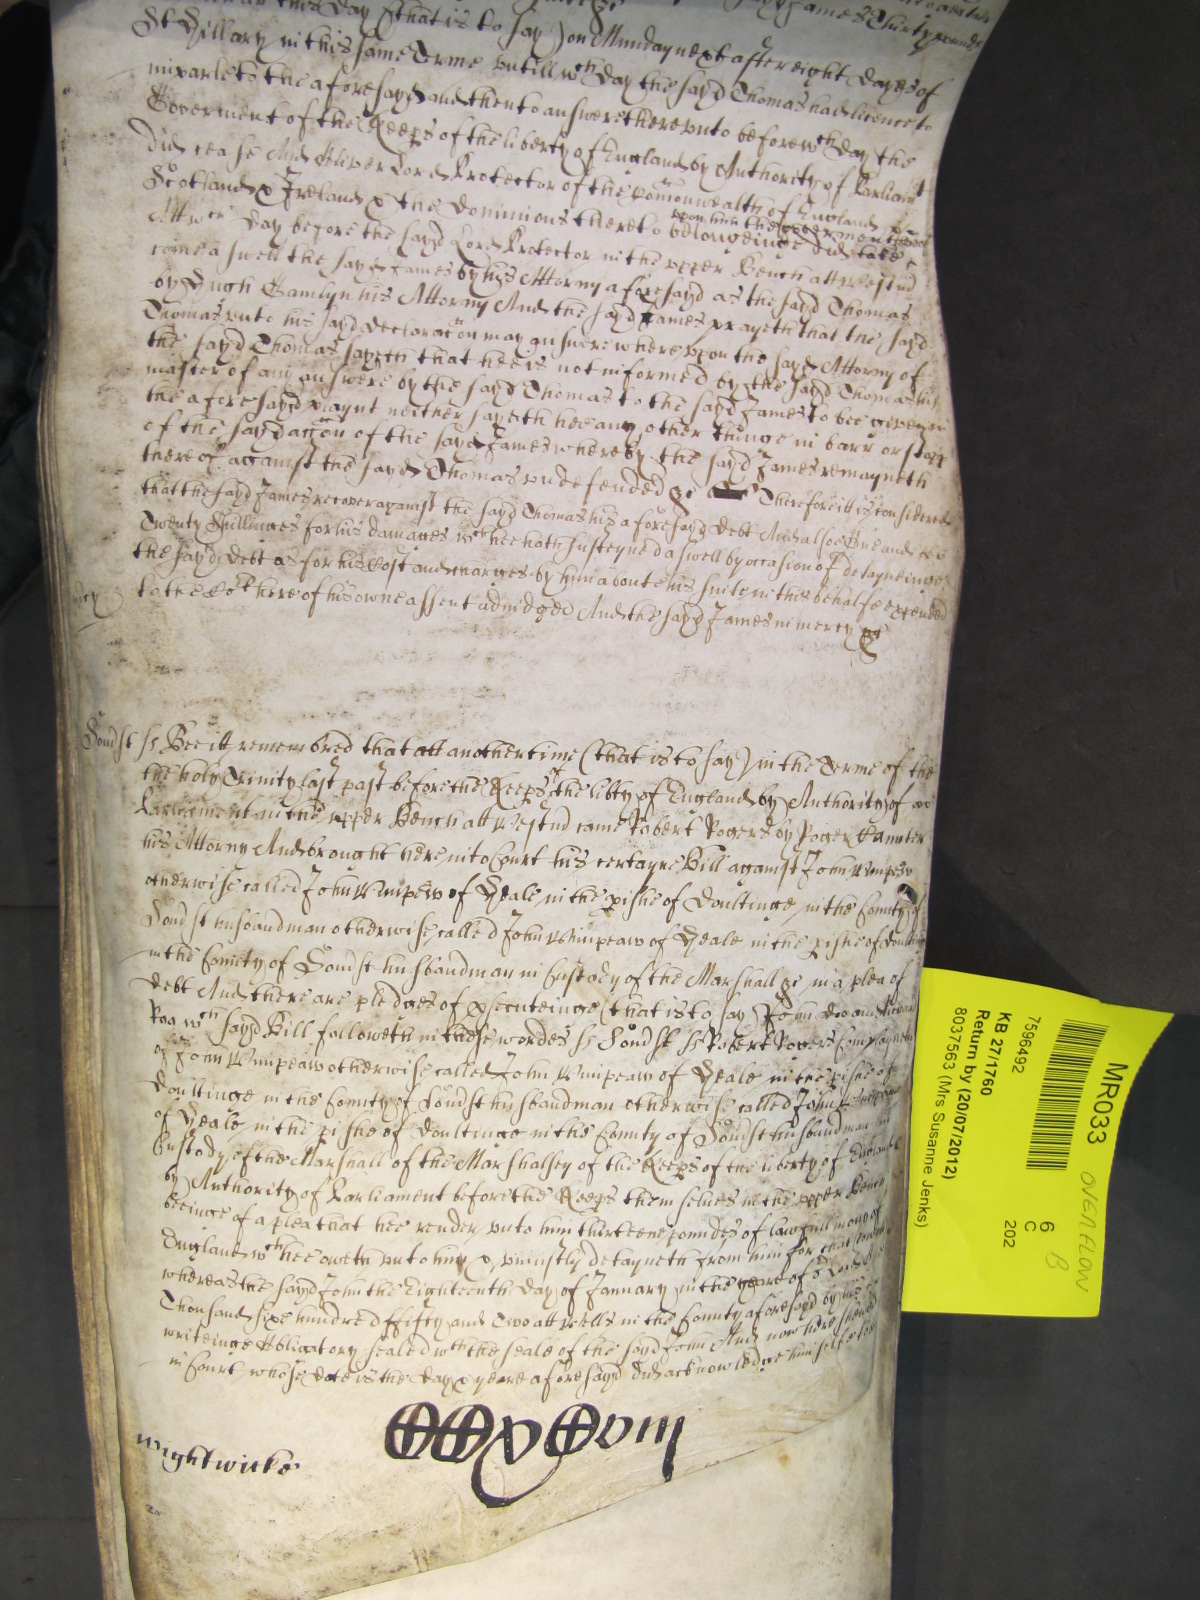 this Day (that is to say) on Munday next after eight Dayes of
St Hillary in this same Terme untill wch Day the sayd Thomas had licence to
imparle to the aforesayd and then to answere thereunto before wch Day the
Goverment of the Keeps of the liberty of England by Authority of Parliamt
did cease And Oliver Lord Protector of the Comonwealth of England
Scotland & Ireland & the Dominions thereto belongeinge did take
upon him the goverment thereof
Att wch Day before the sayd Lord Protector in the upper Bench att Westmr
came aswell the sayd James by his Attorny aforesayd as the sayd Thomas
by Hugh Hamlyn his Attorny And the sayd James prayeth that the sayd
Thomas unto his sayd declaracon may answere whereupon the sayd Attorny of
the sayd Thomas sayeth that hee is not informed by the sayd Thomas his
master of any answere by the sayd Thomas to the sayd James to bee given in
the aforesayd playnt neither sayeth hee any other thinge in barr or stopp
of the sayd accon of the sayd James whereby the sayd James remayneth
thereof against the sayd Thomas undefended &c Therefore itt is considered
that the sayd James recover against the sayd Thomas his aforesayd debt And alsoe One and
Twenty Shillinges for his damages wch hee hath susteyned aswell by occasion of detayneinge
the sayd debt as for his Cost and charges by him about his suite in this behalfe expended
mcy
to the Cort here of his owne assent adiudged And the sayd James in mercy &c
Somst ss Bee itt remembred that att another time (that is to say) in the Terme of the
the holy Trinity last past before the Keeps of the libty of England by Authority of
Parliament in the upper Bench att Westmr came Robert Rogers by Roger
his Attorny And brought here into Court his certayne Bill against John Wimpew
otherwise called John Wimpew of Heale in the pishe of Doultinge in the County of
Somst husbandman otherwise called John Wimpeaw of Heale in the pishe of Doultinge
in the County of Somst husbandman in Custody of the Marshall &c in a plea of
debt And there are pledges of prsecuteinge (that is to say) John Doo and Richard
Roo wch sayd Bill followeth in these wordes ss Somst ss Robert Rogers Complayneth
of John Wimpeaw otherwise called John Wimpeaw of Heale in the pishe of
Doultinge in the County of Somst husbandman otherwise called John Wimpeaw
of Heale in the pishe of Doultinge in the County of Somst husbandman in
Custody of the Marshall of the Marshalsey of the Keeps of the liberty of England
by Authority of Parliament before the Keeps themselves in the upper Bench
beeinge of a plea that hee render unto him thirteene poundes of lawfull mony of
England wch hee oweth unto him & uniustly detayneth from him for that
whereas the sayd John the Eighteenth Day of January in the yeare of or Lord
Thousand sixe hundred fifty and Two att Wells in the County aforesayd by his
writeinge Obligatory sealed wth the seale of the sayd John And now here shewed
in Court whose date is the Day & yeare aforesayd did acknowledge himselfe to
Wightwicke
MR033
OVERFLOW
7596492
6
C
202
B
KB 27/1760
Return by (20/07/2012)
8037563 (Mrs Susanne Jenks)